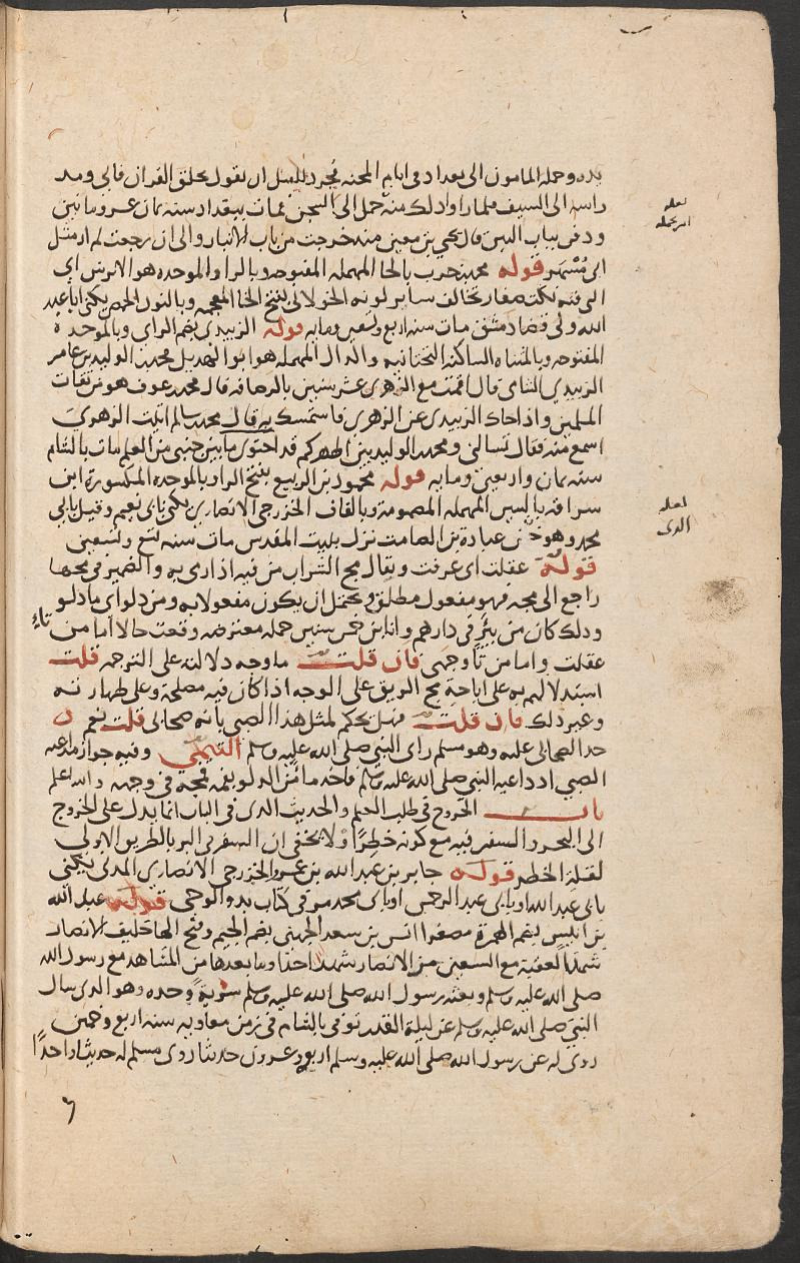 يده وحمله المامون الى بغداد فى ايام المحنه فجرد للقتل ان يقول بخلق القران فابى ومد
راسه الى السيف فلما راوا ذلك منه حمل الى السجن فمات ببغداد سنه ثمان عشر وماتين
ودفن بباب التبن قال يحيى بن معين منذ خرجت من باب الانبار والى ان رجعت لم ار مثل
ابى مُسْهِر قوله محمد بن حرب بالحا المهمله المفتوحه وبالرا والموحده هو الابرش اى
الذى فيه نكت صغار تخالف ساير لونه الخولانى بفتح الخا المعجمه وبالنون الحمصى يكنى ابا عبد
الله ولى قضا دمشق مات سنه اربع وتسعين ومايه قوله الزبيدى بضم الزاى وبالموحدة
المفتوحه وبالمثناه الساكنه التحتانيه والدال المهمله هو ابو الهذيل محمد بن الوليد بن عامر
الزبيدى الشامى قال اقمت مع الزهرى عشر سنين بالرصافه قال محمد بن عوف هو من ثقات
المسلمين واذا جاك الزبيدى عن الزهرى فاستمسك به قال محمد بن سالم اتيت الزهرى
اسمع منه فقال تسالنى ومحمد بن الوليد بين اظهركم قد احتوى ما بين جنبى من العلم مات بالشام
سنه ثمان واربعين ومايه قوله محمود بن الربيع بفتح الرا وبالموحده المكسورة ابن
سراقه بالسين المهمله المضمومة وبالقاف الخزرجى الانصارى يكنى بابى نعيم وقيل بابى
محمد وهو ختن عبادة بن الصامت نزل ببيت المقدس مات سنه تسع وتسعين
قوله عقلت اى عرفت ويقال مج الشراب من فيه اذا رمى به والضمير فى مجها
راجع الى مجه فهو مفعول مطلق ويحتمل ان يكون مفعولا به ومن دلو اى ما دلو
وذلك كان من بئر فى دارهم وانا ابن خمس سنين جمله معترضه وقعت حالا اما من تاء
عقلت واما من يا وجهى فان قلت ما وجه دلالته على الترجمه قلت
استدلالهم به على اباحة مج الريق على الوجه اذا كان فيه مصلحة وعلى طهارته
وغير ذلك فان قلت فهل يحكم لمثل هذا الصبى بانه صحابى قلت نعم ن
حد الصحابى عليه وهو مسلم راى النبى صلى الله عليه وسلم التيمى وفيه جواز مداعبة
الصبى اذ داعبه النبى صلى الله عليه وسلم فاخذ ماء من الدلو بفمه فمجه فى وجهه والله اعلم
باب الخروج فى طلب العلم والحديث الذى فى الباب انما يدل على الخروج
الى البحر والسفر فيه مع كونه خطِرًا ولا يخفى ان السفر فى البر بالطريق الاولى
لقلة الخطر قوله جابر بن عبد الله بن عمرو الخزرجى الانصارى المدنى يكنى
بابى عبد الله او بابى عبد الرحمن او بابى محمد مر فى كتاب بدو الوحى قوله عبد الله
بن انيس بضم الهمزة مصغرا انس بن سعد الجهنى بضم الجيم وفتح الها حليف الانصار
شهد العقبة مع السبعين من الانصار شهد احدا وما بعدها من المشاهد مع رسول الله
صلى الله عليه وسلم وبعثه رسول الله صلى الله عليه وسلم سرية وحده وهو الذى سال
النبى صلى الله عليه وسلم عن ليلة القدر توفى بالشام فى زمن معاويه سنه اربع وخمسين
روى له عن رسول الله صلى الله عليه وسلم اربعه وعشرون حديثا روى مسلم له حديثا واحدًا
لعله
لعله
الذى